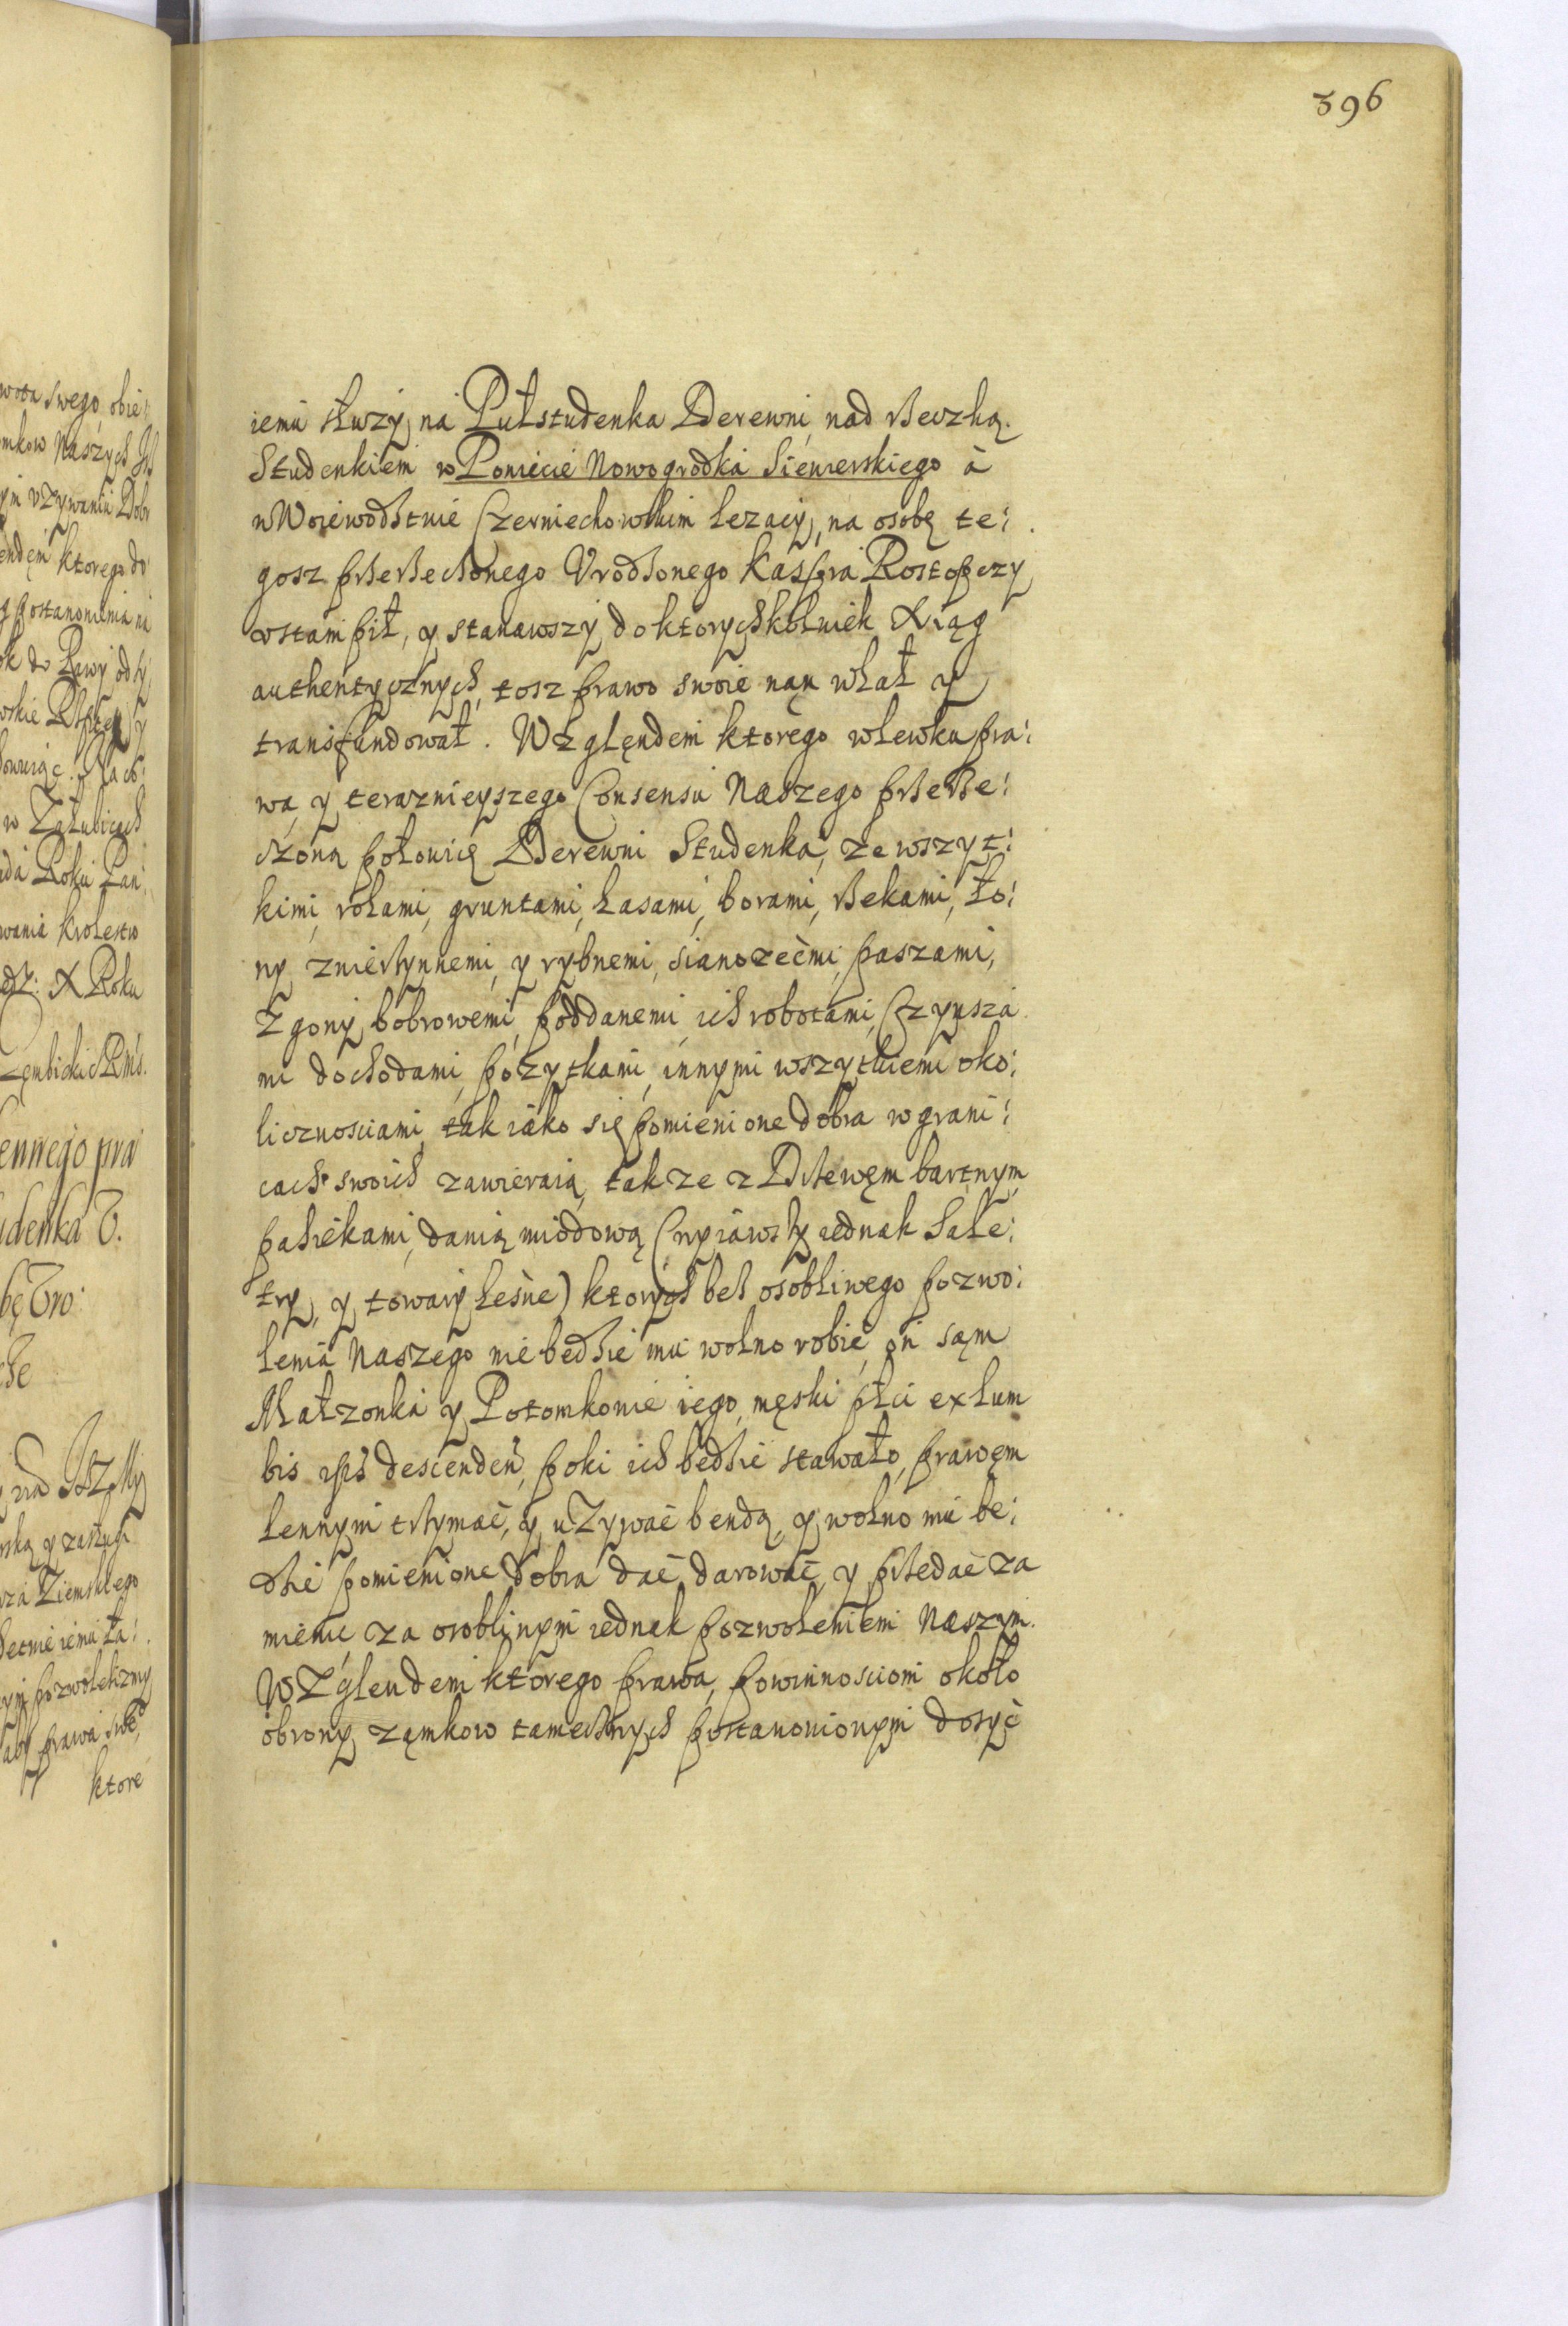 396
iemu służy, na Pułstudenka Derewni, nad Rzeczką
Studenkiem w Powiecie Nowogrodka Siewierskiego a
w Woiewodztwie Czerniechowskim lezacy, na osobę te:
gosz przerzeczonego Vrodzonego Kaspra Rostopczy
vstampił, y stanąwszy do ktorychkolwiek Xiąg
authentycznych, tosz prawo swoie nąn wlał y
transfundował. Względem ktorego wlewku pra:
wa, y teraznieyszego Consensu Naszego przerze:
czoną połowicę Derewni Studenka, ze wszyt:
kimi, rolami, gruntami, lasami, borami, rzekami, ło:
ny zwierzynnemi, y rybnemi, sianozećmi, paszami,
Zgony bobrowemi, poddanemi, ich robotami, Czynsza
mi dochodami, pozytkami, innymi wszytkiemi oko:
licznosciami, tak iako się pomienione dobra w grani:
cach swoich zawieraią, takze z Drzewęm bartnym
pasiekami, danią miodową (wyiąwszy iednak Sale:
try, y towary leśne) ktorych bez osobliwego pozwo:
lenia Naszego nie będzie mu wolno robić, on sąm
Małzonka y Potomkowie iego, męski płci ex lum
bis ips descenden, poki ich będzie stawało, prawęm
lennym trzymać, y uZywać bendą, y wolno mu bę:
dzie pomienione dobra dać, darować, y przedać za
mienić za osobliwym iednak pozwoleniem Naszym.
WZglendem ktorego prawa, powinnosciom około
obrony ząmkow tamecznych postanowionym dosyć